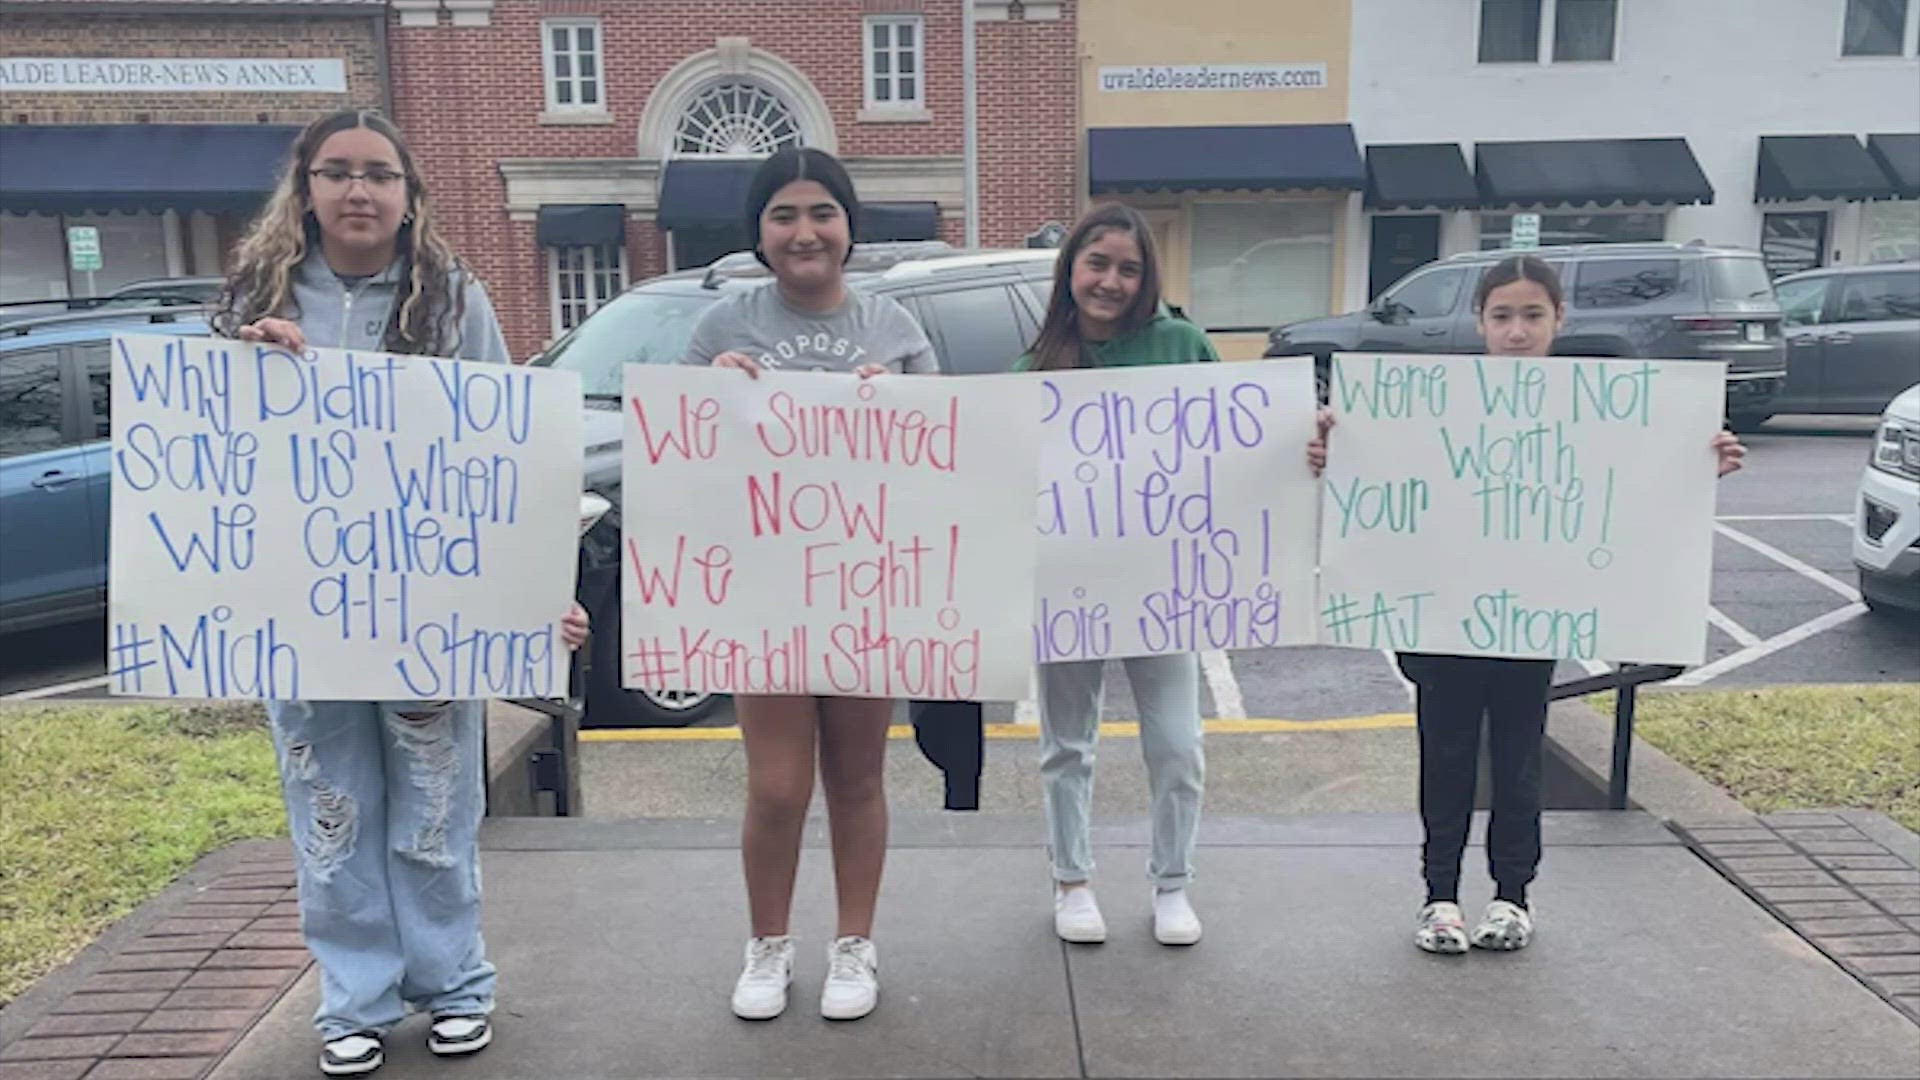 ALDE LEADER-NEWS ANNEX
uvaldeleadernews.com
Why Didnt You
Save US When
We Called
9-1-1
#Miah Strong
PROPOST
We Survived
NOW
We Fight!
#Kendall Strong
Pargas
ailed
US!
loie Strong
Were We Not
Worth
Your Time!
#AJ Strong